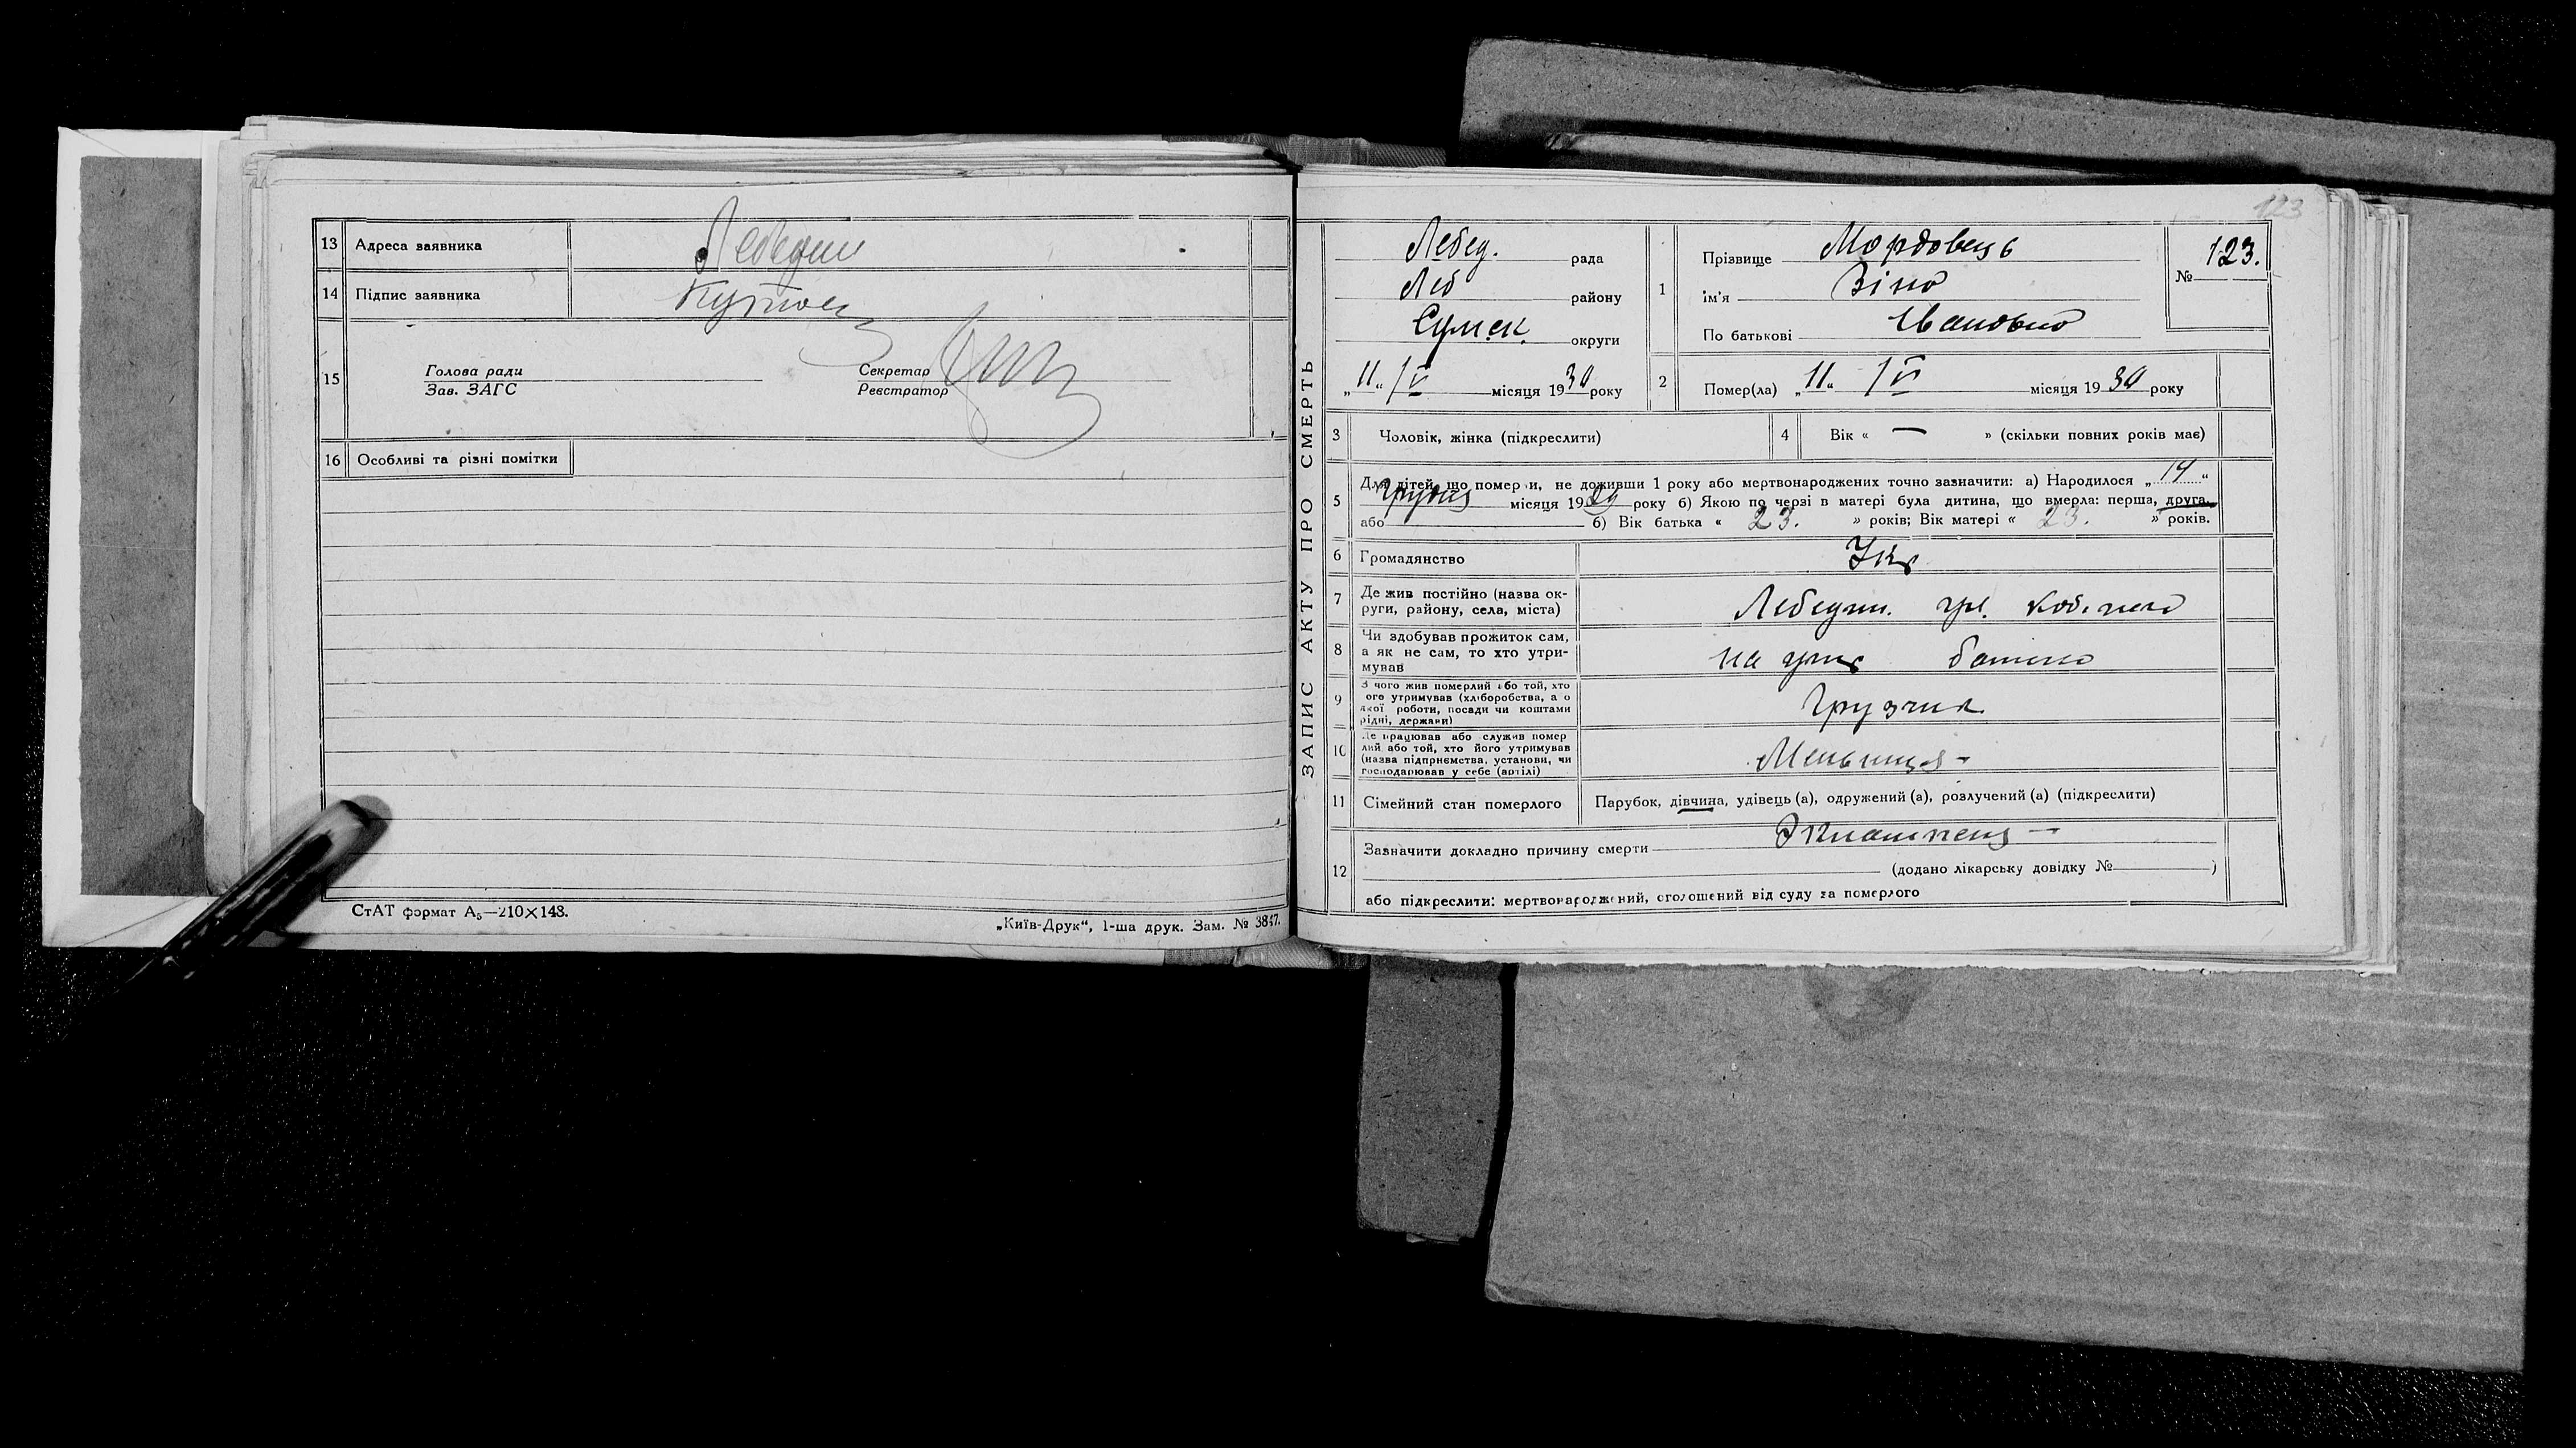 13 Адреса заявника Лебедин
14 Підпис заявника
15 Голова ради
Зав. ЗАГС
Секретар
Реєстратор
16 Особливі та різні помітки
СтАТ формат А₅—210×148.
„Київ-Друк“, 1-ша друк. Зам. № 3847.
ЗАПИС АКТУ ПРО СМЕРТЬ
123
Лебед. рада
Леб району
Сумск. округи
„11“ IV місяця 1930 року
1 Прізвище Мордовець
ім'я Зіна
По батькові Івановна
№ 123.
2 Помер(ла) „11“ IV місяця 1930 року
3 Чоловік, жінка (підкреслити)
4 Вік « — » (скільки повних років має)
5 Для дітей, що померли, не доживши 1 року або мертвонароджених точно зазначити: а) Народилося „14“
Грудня місяця 1929 року б) Якою по черзі в матері була дитина, що вмерла: перша, друга,
або б) Вік батька « 23. » років; Вік матері « 23. » років.
6 Громадянство Укр
7 Де жив постійно (назва округи, району, села, міста) Лебедин.
8 Чи здобував прожиток сам,
а як не сам, то хто утри-
мував на утр батька
9 З чого жив померлий або той, хто
його утримував (хліборобства, а о
якої роботи, посади чи коштами
рідні, держави) Грузчик
10 Де працював або служив помер
лий або той, хто його утримував
(назва підприємства, установи, чи
господарював у себе (артілі)
11 Сімейний стан померлого Парубок, дівчина, удівець (а), одружений (а), розлучений (а) (підкреслити)
12 Зазначити докладно причину смерти
(додано лікарську довідку № )
або підкреслити: мертвонароджений, оголошений від суду за померлого